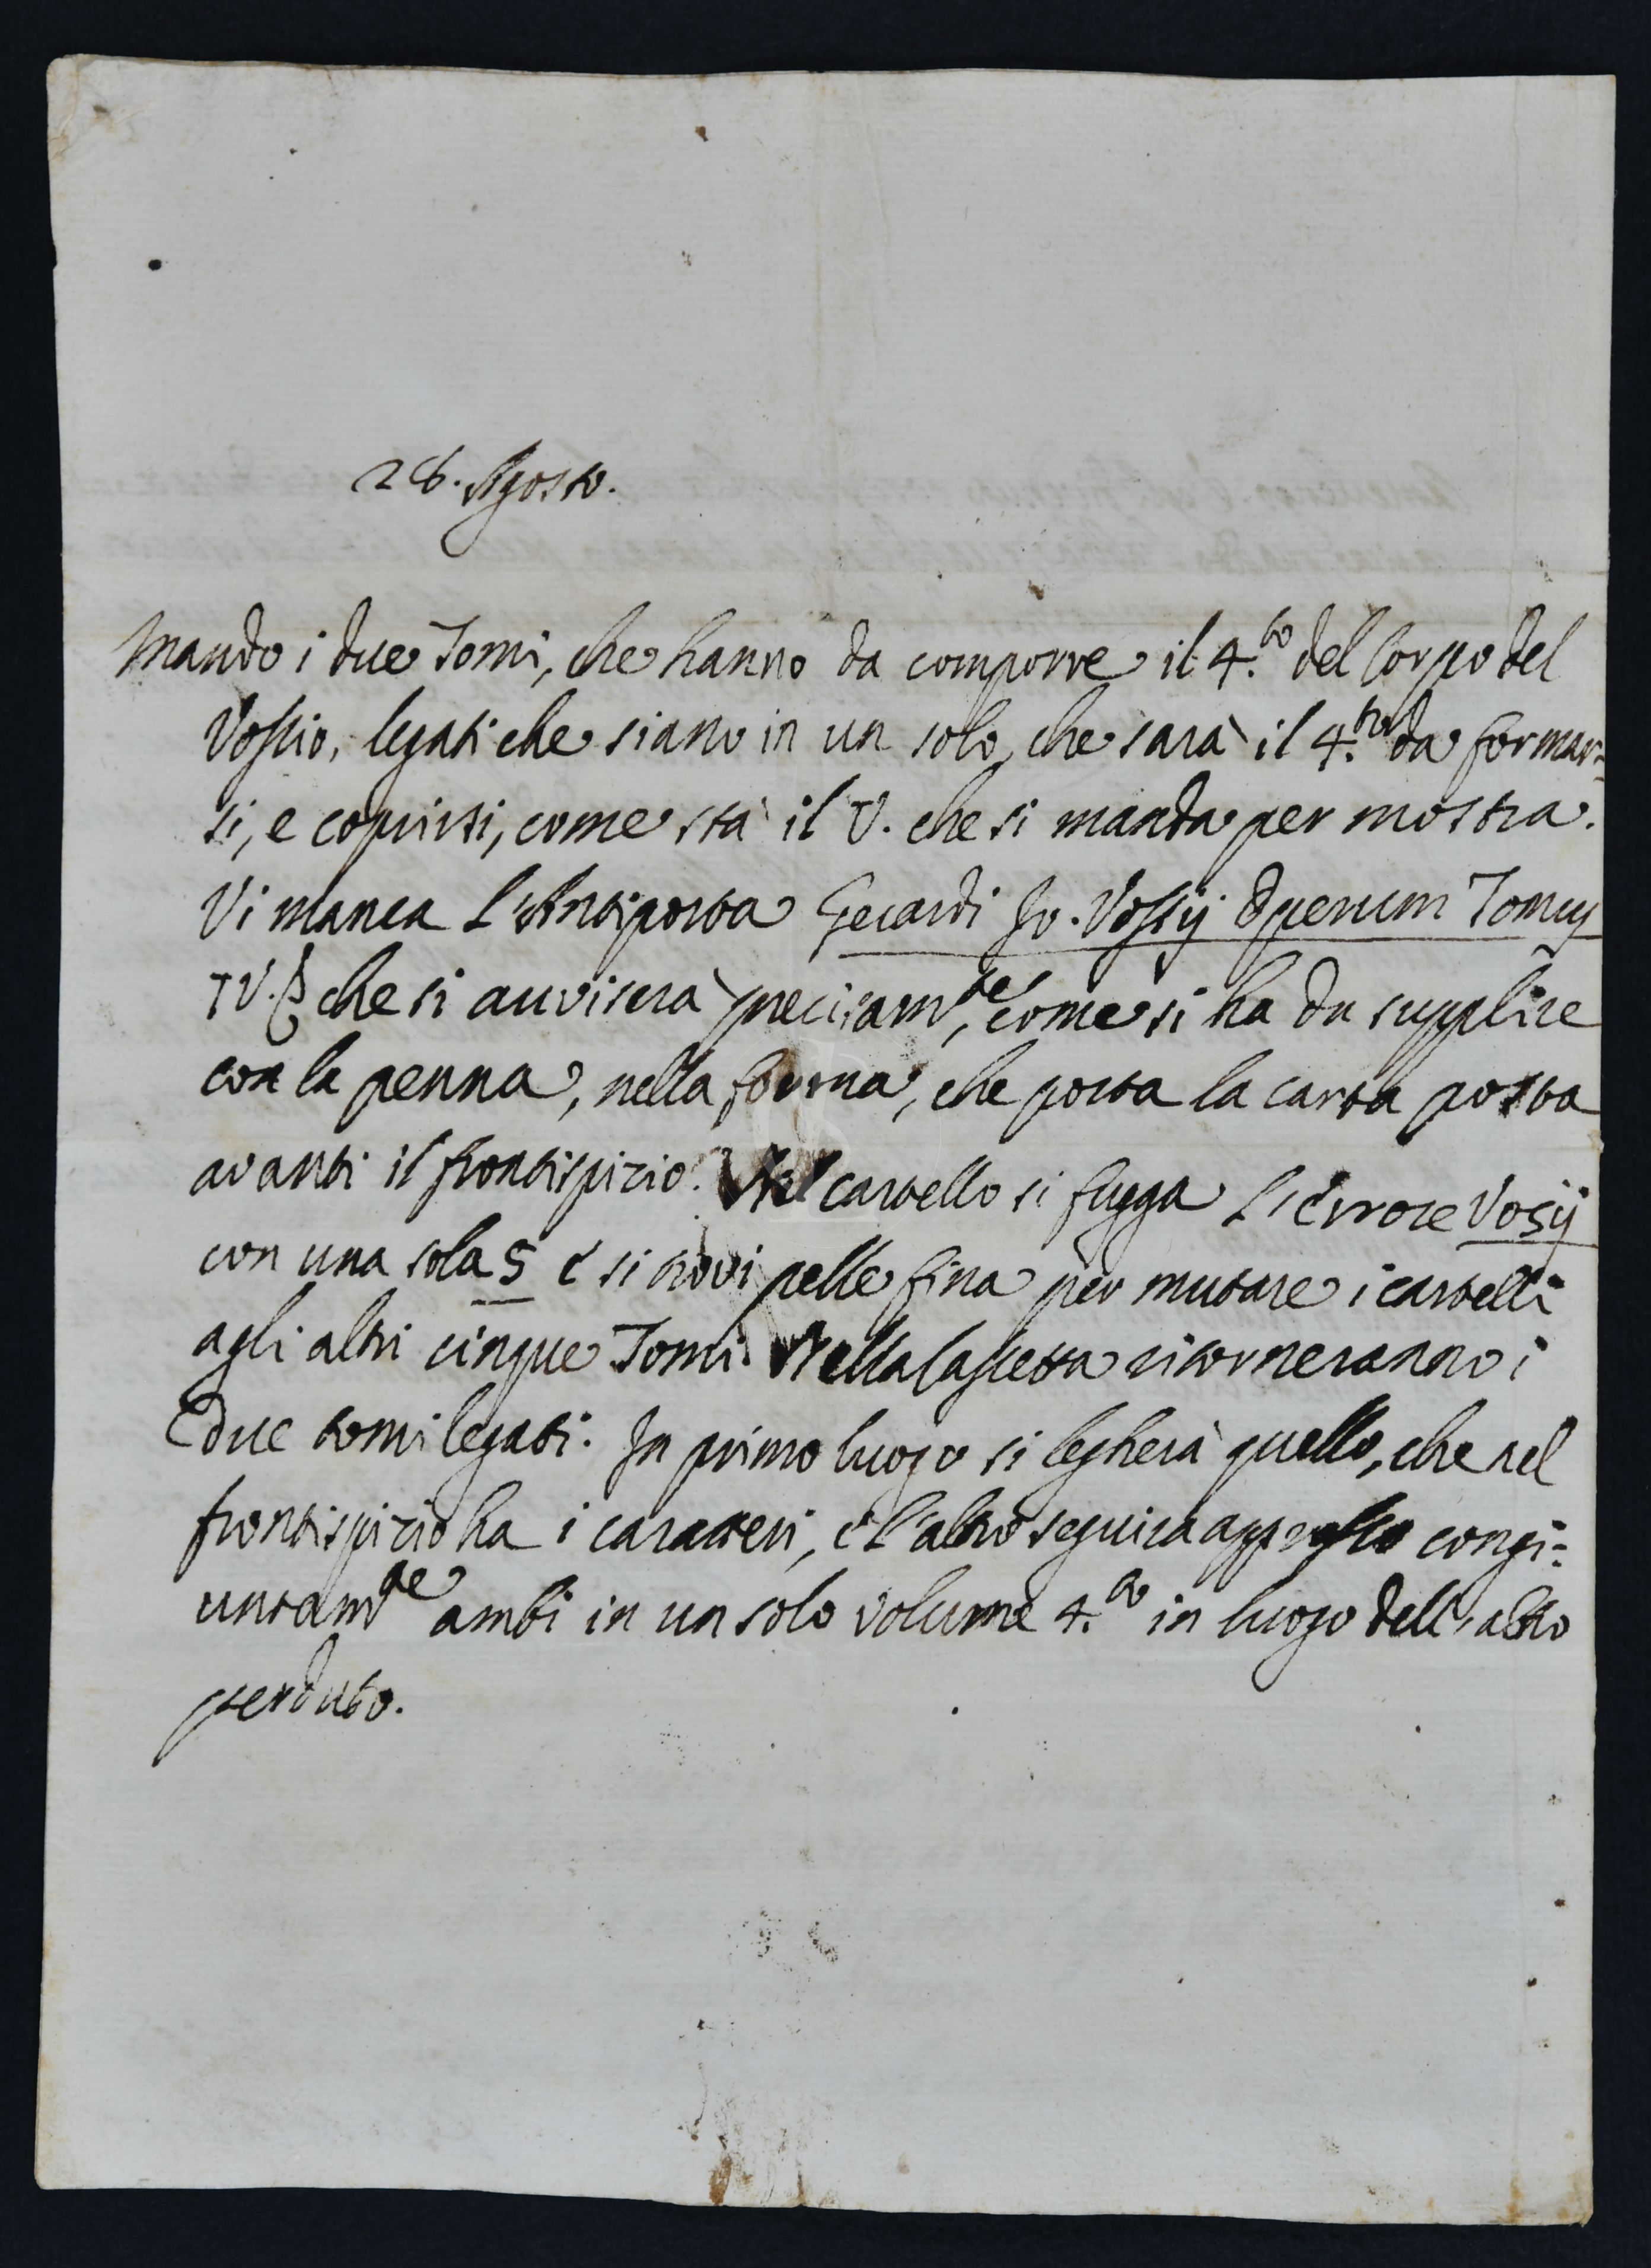 28. Agosto.
Mando i due Tomi, che hanno da comporre il 4.to del Corpo del
Vossio, legati che siano in un solo, che sarà il 4.to da formar=
si, e coprirsi, come stà il V. che si manda per mostra.
Vi manca l'Antiporta Gerardi Jo. Vossij Operum Tomus
IV. che si avviserà precisam.te, come si ha da supplire
con la penna, nella forma, che porta la carta posta
avanti il frontispizio. Nel cartello si fugga l'errore Vosij
con una sola S e si trovi pelle fina per mutare i cartelli
agli altri cinque Tomi. Nella Cassetta ritorneranno i
due tomi legati. In primo luogo si legherà quello, che nel
frontispizio ha i caratteri, e l'altro seguirà appresso congi=
untam.te ambi in un solo volume 4.to in luogo dell'altro
perduto.